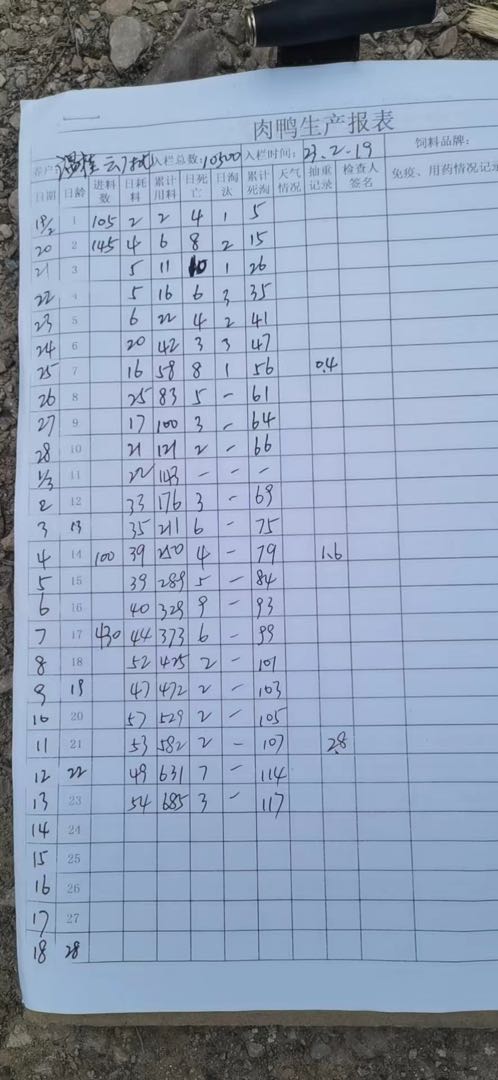 肉鸭生产报表
养户: 入栏总数:10500 入栏时间: 23.2-19 饲料品牌:
日期 日龄 进料数 日耗料 累计用料 日死亡 日淘汰 累计死淘 天气情况 抽重记录 检查人签名 免疫、用药情况记录
19/2 1 105 2 2 4 1 5
20 2 145 4 6 8 2 15
21 3 5 11 10 1 26
22 4 5 16 6 3 35
23 5 6 22 4 2 41
24 6 20 42 3 3 47
25 7 16 58 8 1 56 0.4
26 8 25 83 5 - 61
27 9 17 100 3 - 64
28 10 21 121 2 - 66
1/3 11 22 143 - - -
2 12 33 176 3 - 69
3 13 35 211 6 - 75
4 14 100 39 250 4 - 79 1.6
5 15 39 289 5 - 84
6 16 40 329 9 - 93
7 17 430 44 373 6 - 99
8 18 52 425 2 - 101
9 19 47 472 2 - 103
10 20 57 529 2 - 105
11 21 53 582 2 - 107 2.8
12 22 49 631 7 - 114
13 23 54 685 3 - 117
14 24
15 25
16 26
17 27
18 28